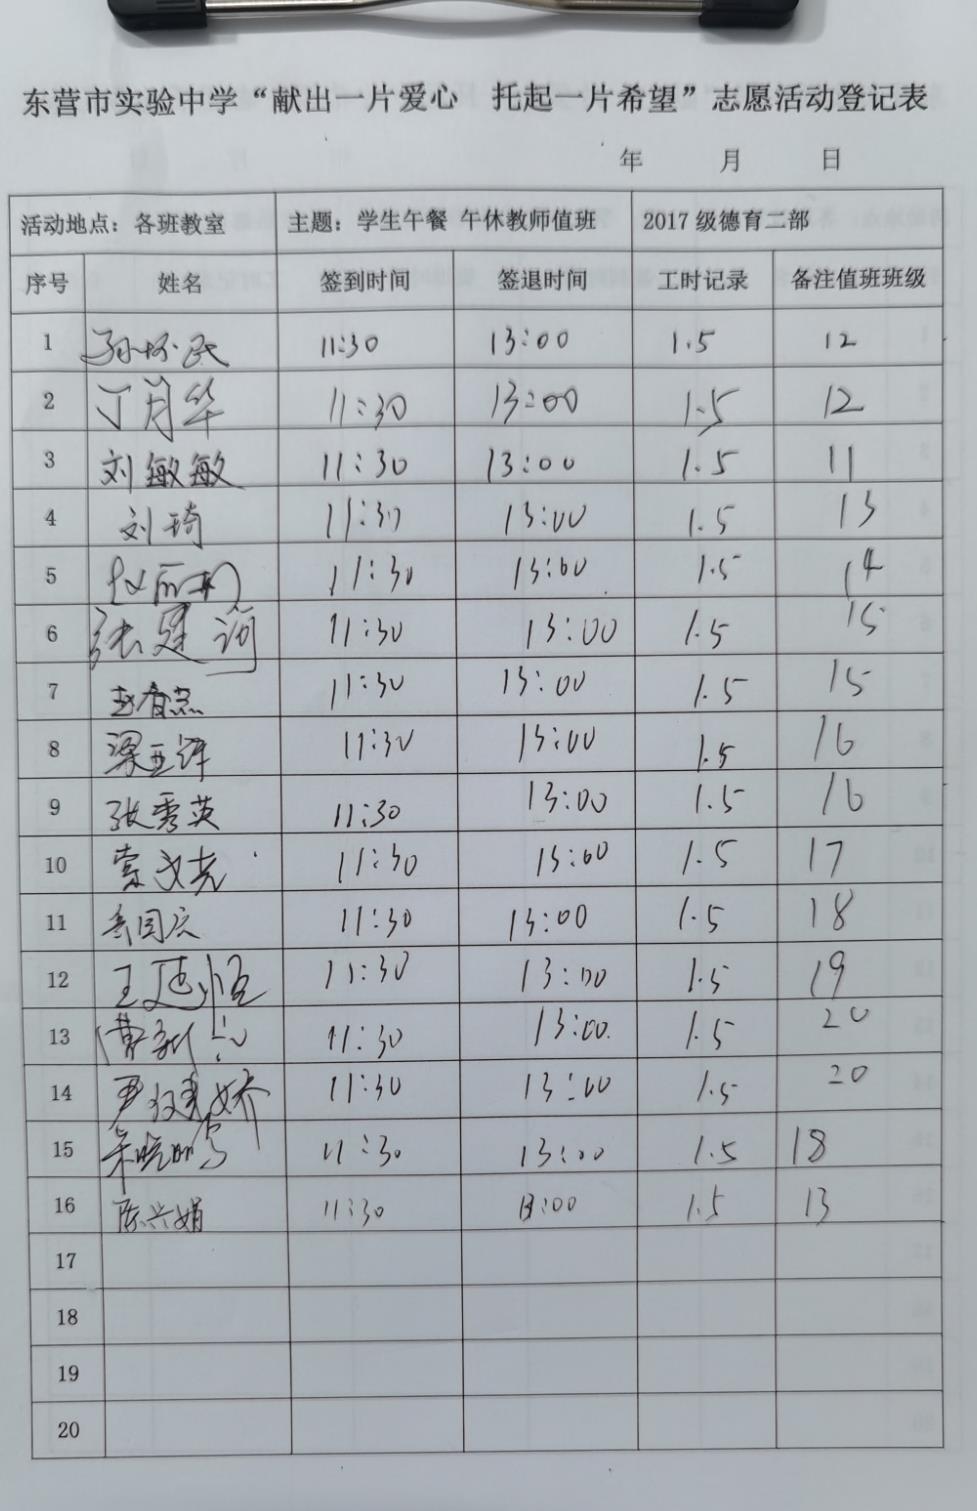 东营市实验中学“献出一片爱心 托起一片希望”志愿活动登记表
年 月 日
活动地点：各班教室 主题：学生午餐 午休教师值班 2017 级德育二部
序号 姓名 签到时间 签退时间 工时记录 备注值班班级
1 孙怀民 11:30 13:00 1.5 12
2 丁月华 11:30 13:00 1.5 12
3 刘敏敏 11:30 13:00 1.5 11
4 刘琦 11:30 13:00 1.5 13
5 11:30 13:00 1.5 14
6 张建河 11:30 13:00 1.5 15
7 11:30 13:00 1.5 15
8 梁亚锋 11:30 13:00 1.5 16
9 张秀英 11:30 13:00 1.5 16
10 11:30 13:00 1.5 17
11 11:30 13:00 1.5 18
12 王延恒 11:30 13:00 1.5 19
13 11:30 13:00 1.5 20
14 11:30 13:00 1.5 20
15 11:30 13:00 1.5 18
16 陈兴娟 11:30 13:00 1.5 13
17
18
19
20